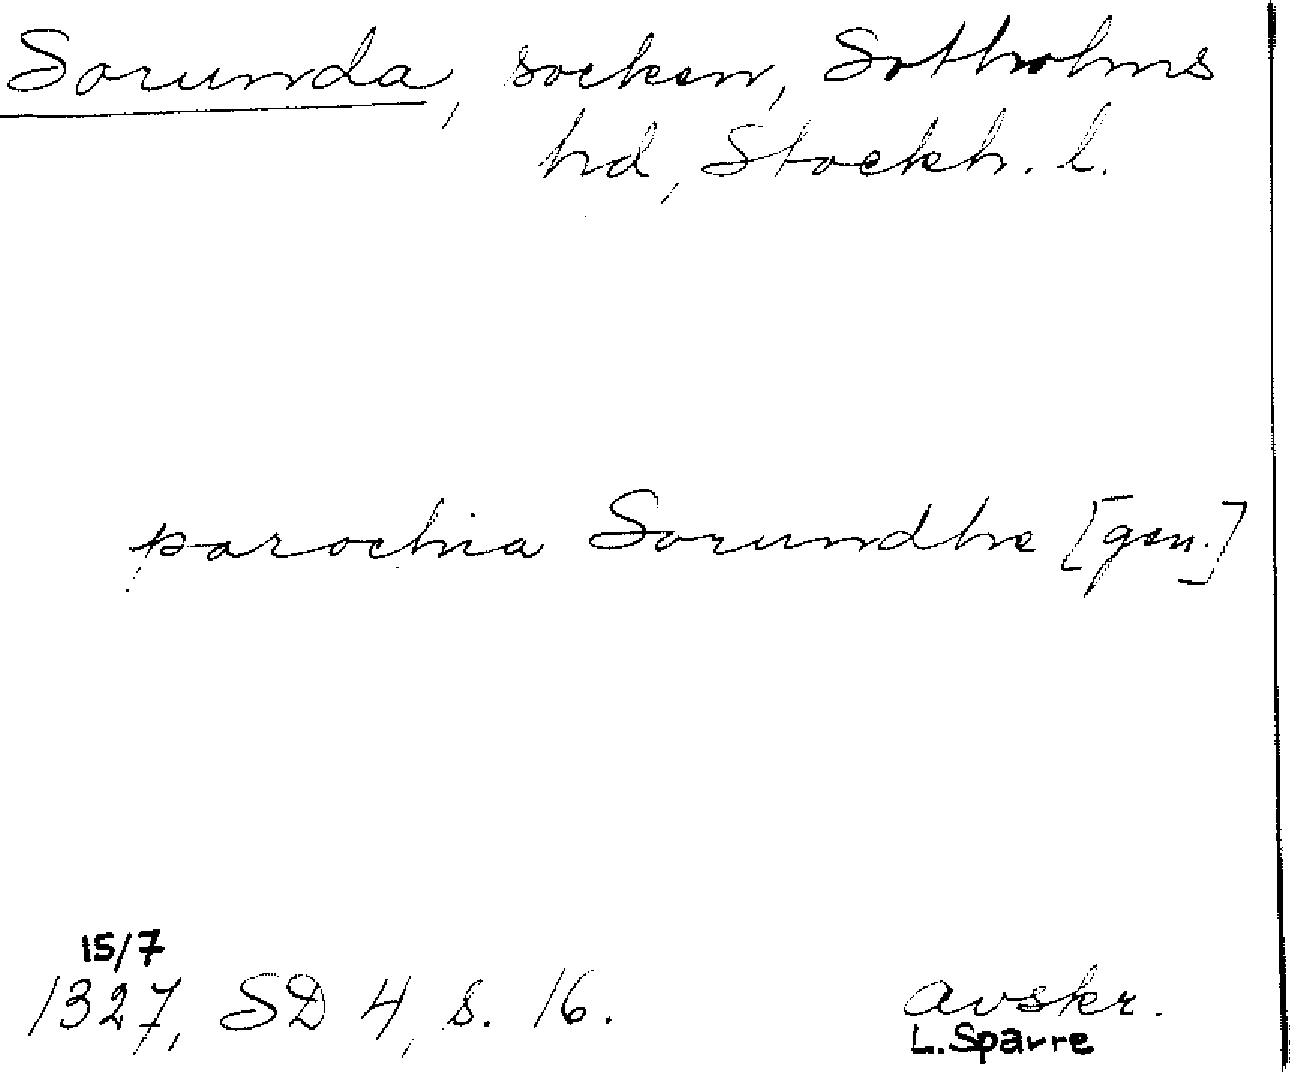 Sorunda, socken, Sotholms
hd, Stockh. l.
parochia Sorundhe [gen.]
15/7
1327, SD 4, s. 16.
avskr.
L. Sparre